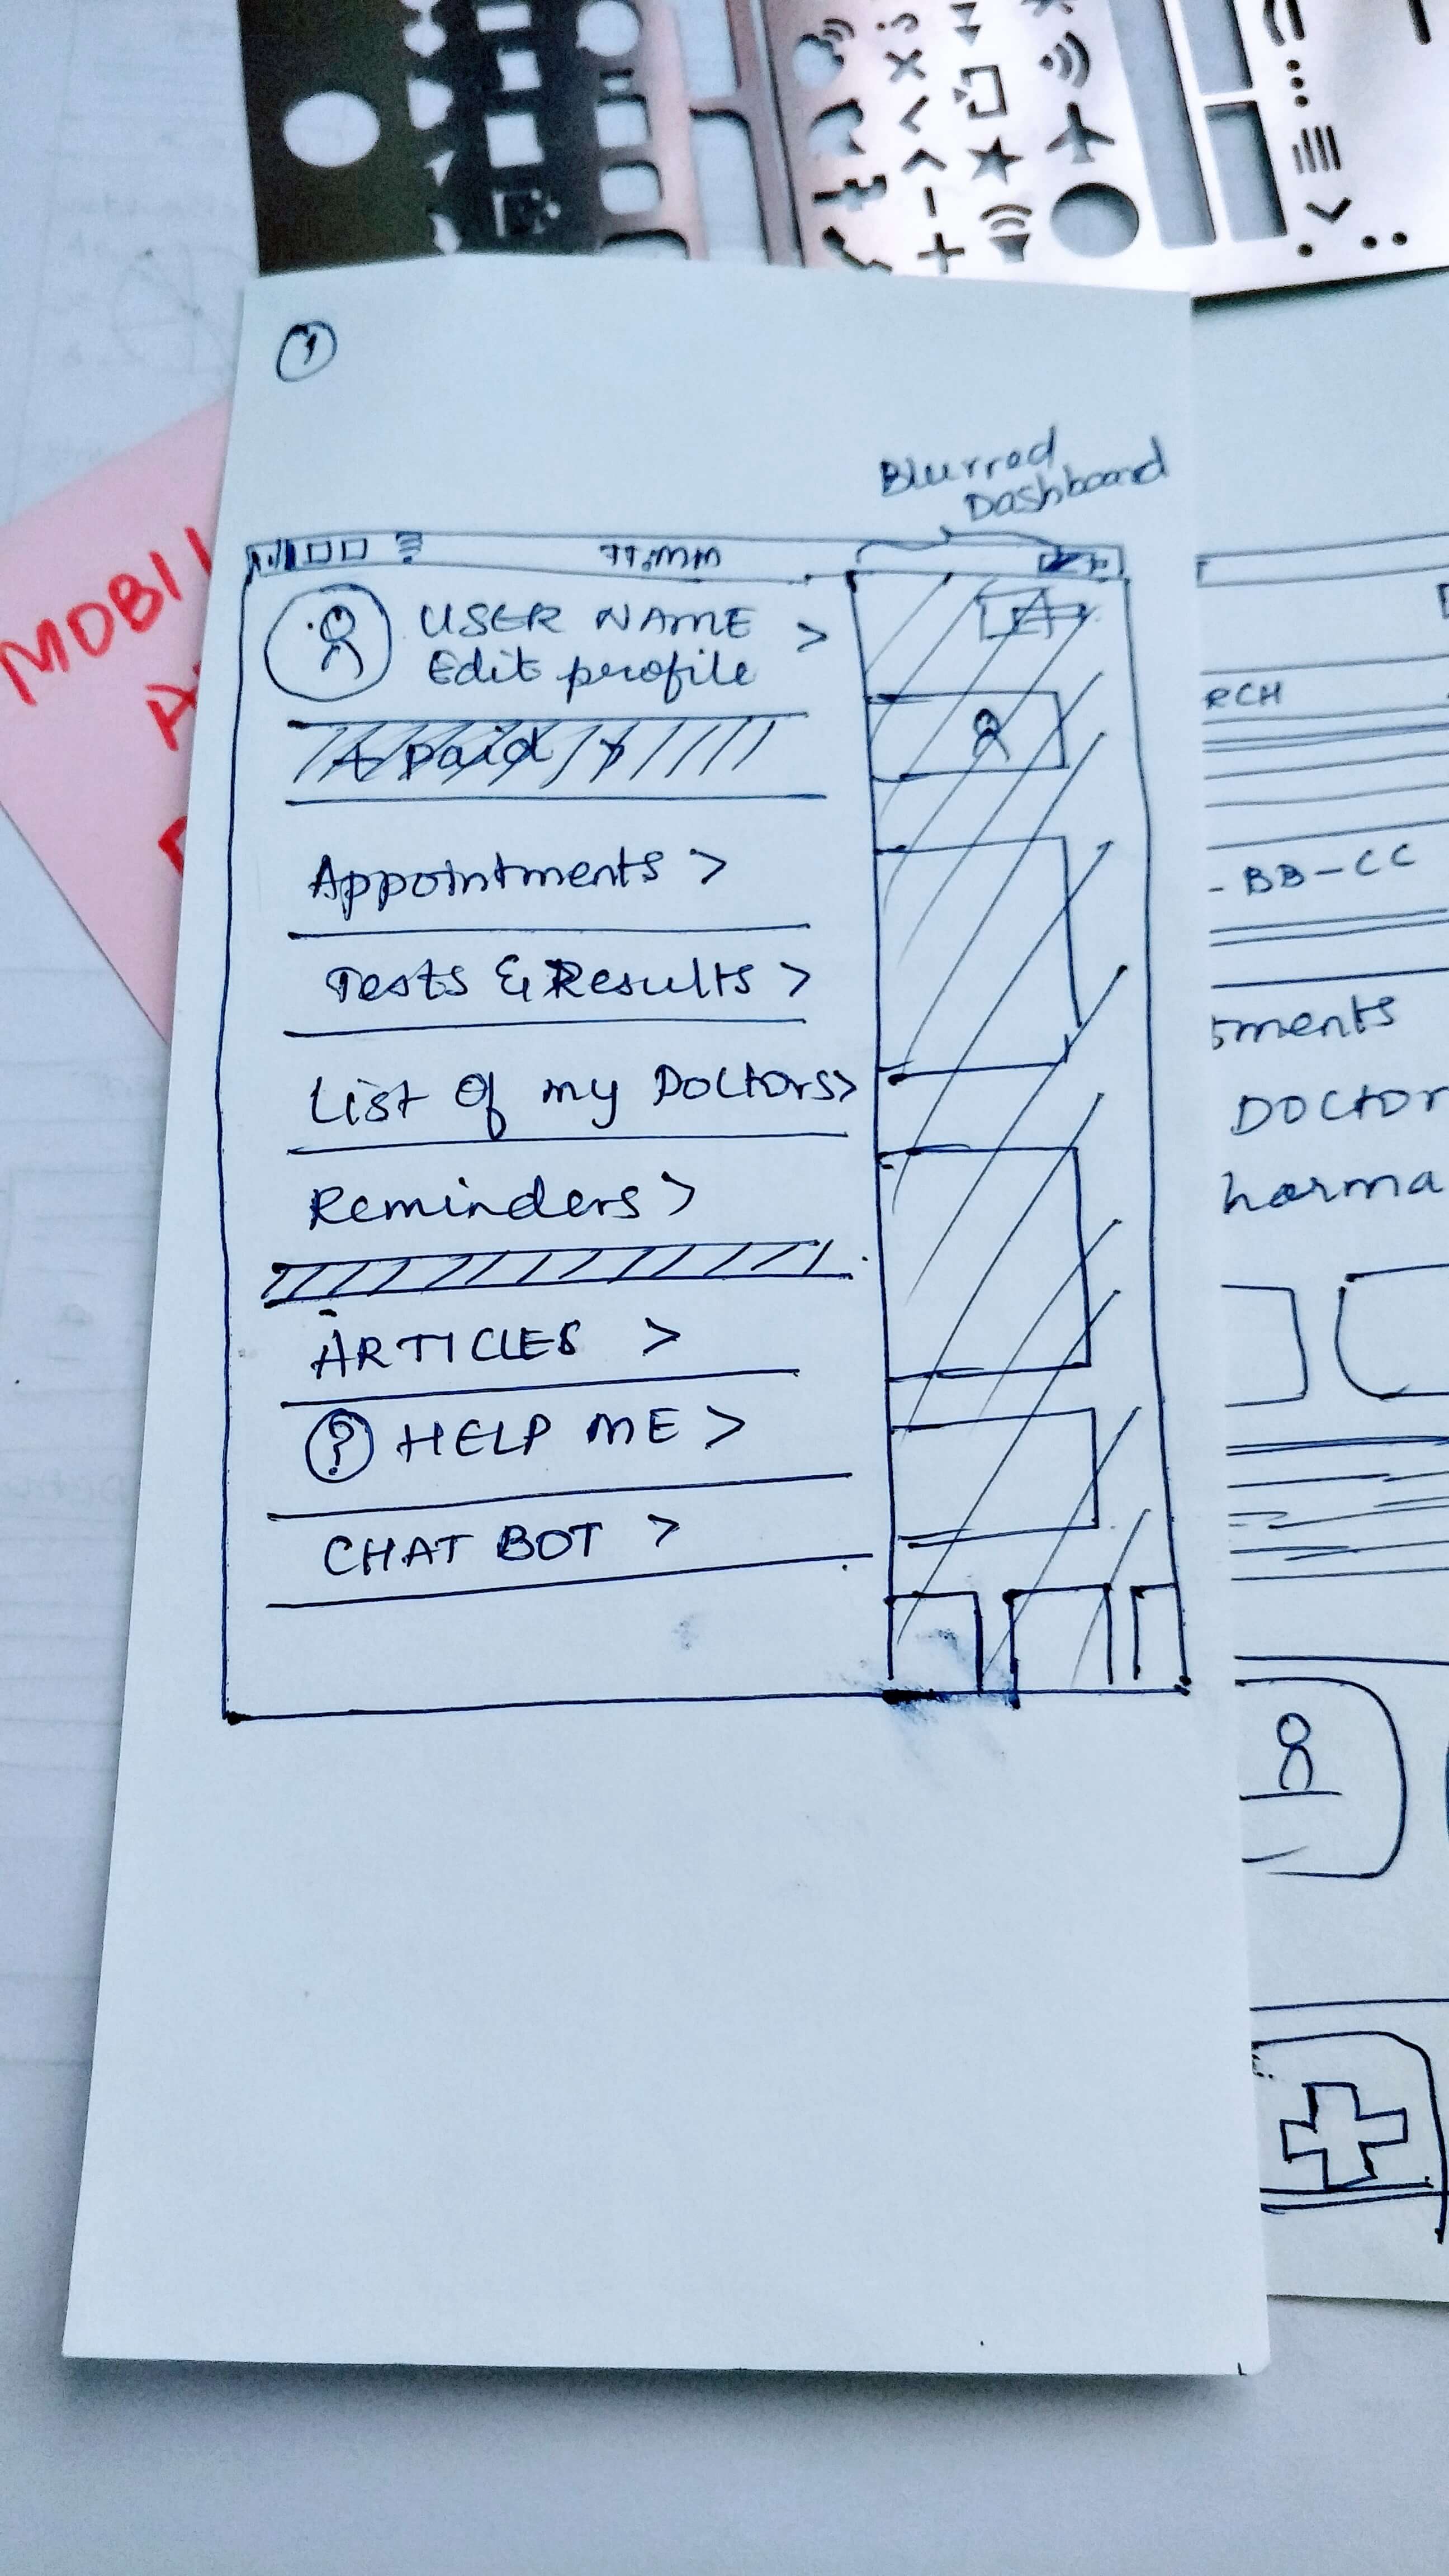 1
Blurred
Dashboard
TT:MM
USER NAME >
Edit profile
Appointments >
Tests & Results >
List of my Doctors>
Reminders >
ARTICLES >
? HELP ME >
CHAT BOT >
MOBIL
RCH
- BB-CC
tments
Doctor
harma